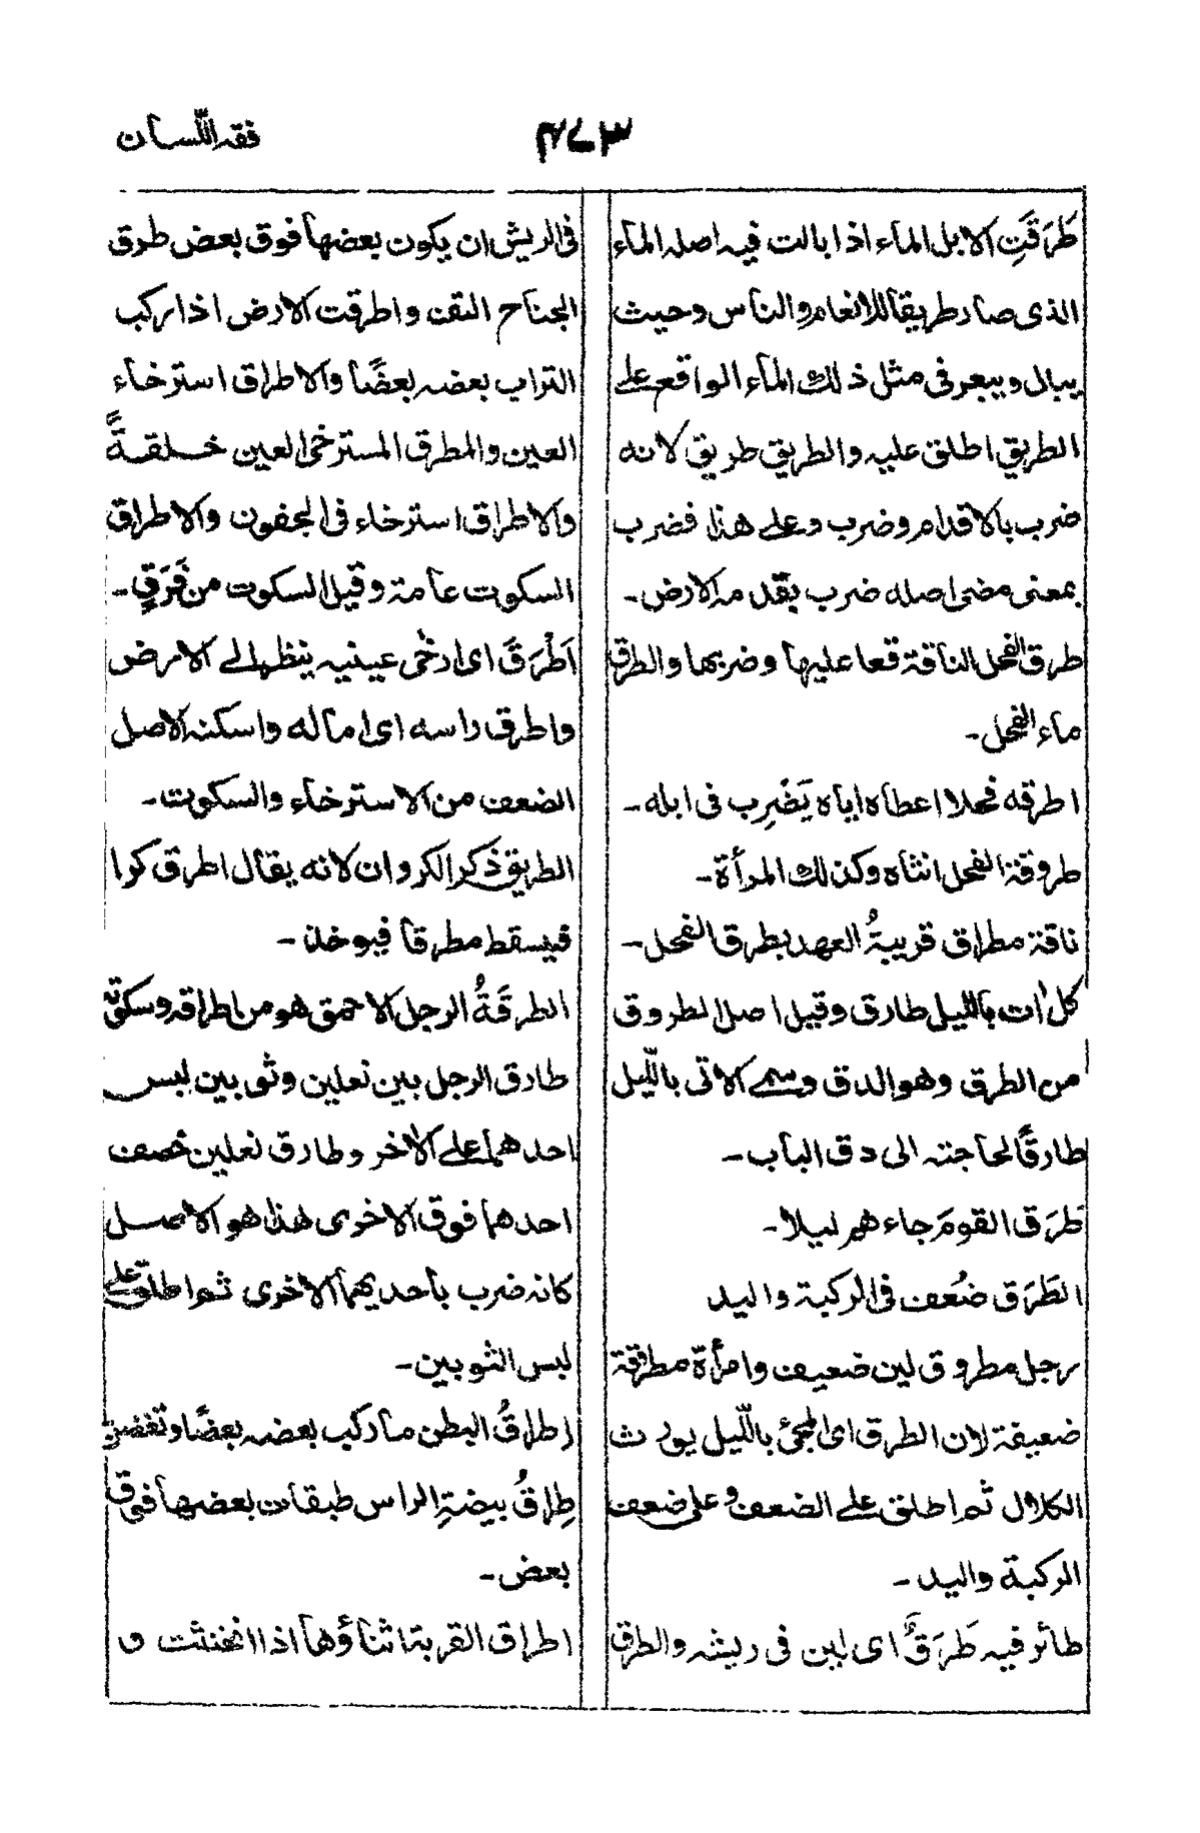 فقہ اللّسان
٤٧٣
طَرَقَتِ الابل الماء اذا بالت فيہ اصلہ الماء
الذی صار طريقاً للانعام والناس وحيث
يبال ويبعر فی مثل ذلك الماء الواقع علے
الطريق اطلق عليہ والطريق طريق لانه
ضرب بالاقدام وضرب وعلے هذا فضرب
بمعنی مضی اصله ضرب بقدمہ الارض ۔
طرق الفحل الناقة قعا عليها وضربها والطرق
ماء الفحل ۔
اطرقه فحلا اعطاه اياه يَضْرِب فی ابله ۔
طروقة الفحل انثاه وكذلك المرأة ۔
ناقة مطراق قريبةُ العهد بطرق الفحل ۔
كل اٰت باللّيل طارق وقيل اصل الطروق
من الطرق وهو الدق وسمے الاتی باللّيل
طارقًا لحاجتہ الی دق الباب ۔
طَرَق القومَ جاءهم ليلا ۔
الطَرَق ضُعف فی الركبة واليد
رجل مطروق لين ضعيف وامرأة مطروقة
ضعيفة لان الطرق ای المجیٔ باللّيل يورث
الكلال ثم اطلق علے الضعف وعلی ضعف
الركبة واليد ۔
طائر فيہ طَرَقٌ ای لين فی ريشہ والطرق
فی الريش ان يكون بعضها فوق بعض طرق
الجناح التف واطرقت الارض اذا ركب
التراب بعضہ بعضًا والاطراق استرخاء
العين والمطرق المسترخی العين خلقةً
والاطراق استرخاء فی الجفون والاطراق
السكوت عامة وقيل السكوت من فَرَقٍ ۔
اَطْرَقَ ای ارخٰی عينيہ ينظر الے الارض
واطرق راسه ای اماله واسكنہ الاصل
الضعف من الاسترخاء والسكوت ۔
الطريق ذكر الكروان لانه يقال اطرق كرا
فيسقط مطرقا فيوخذ ۔
الطرقَةُ الرجل الاحمق هو من اطراقہ وسكوتہ
طارق الرجل بين نعلين وثوبين لبس
احدهما علے الاٰخر وطارق نعلين خصف
احدهما فوق الاخری هذا هو الاصل
كانہ ضرب باحديهما الاخری ثم اطلق علے
لبس الثوبين ۔
اطراقُ البطن ما ركب بعضہ بعضًا وتغضن
طِراقُ بيضةِ الراس طبقات بعضها فوق
بعض ۔
اطراق القربة اثناؤها اذا انخنثت و